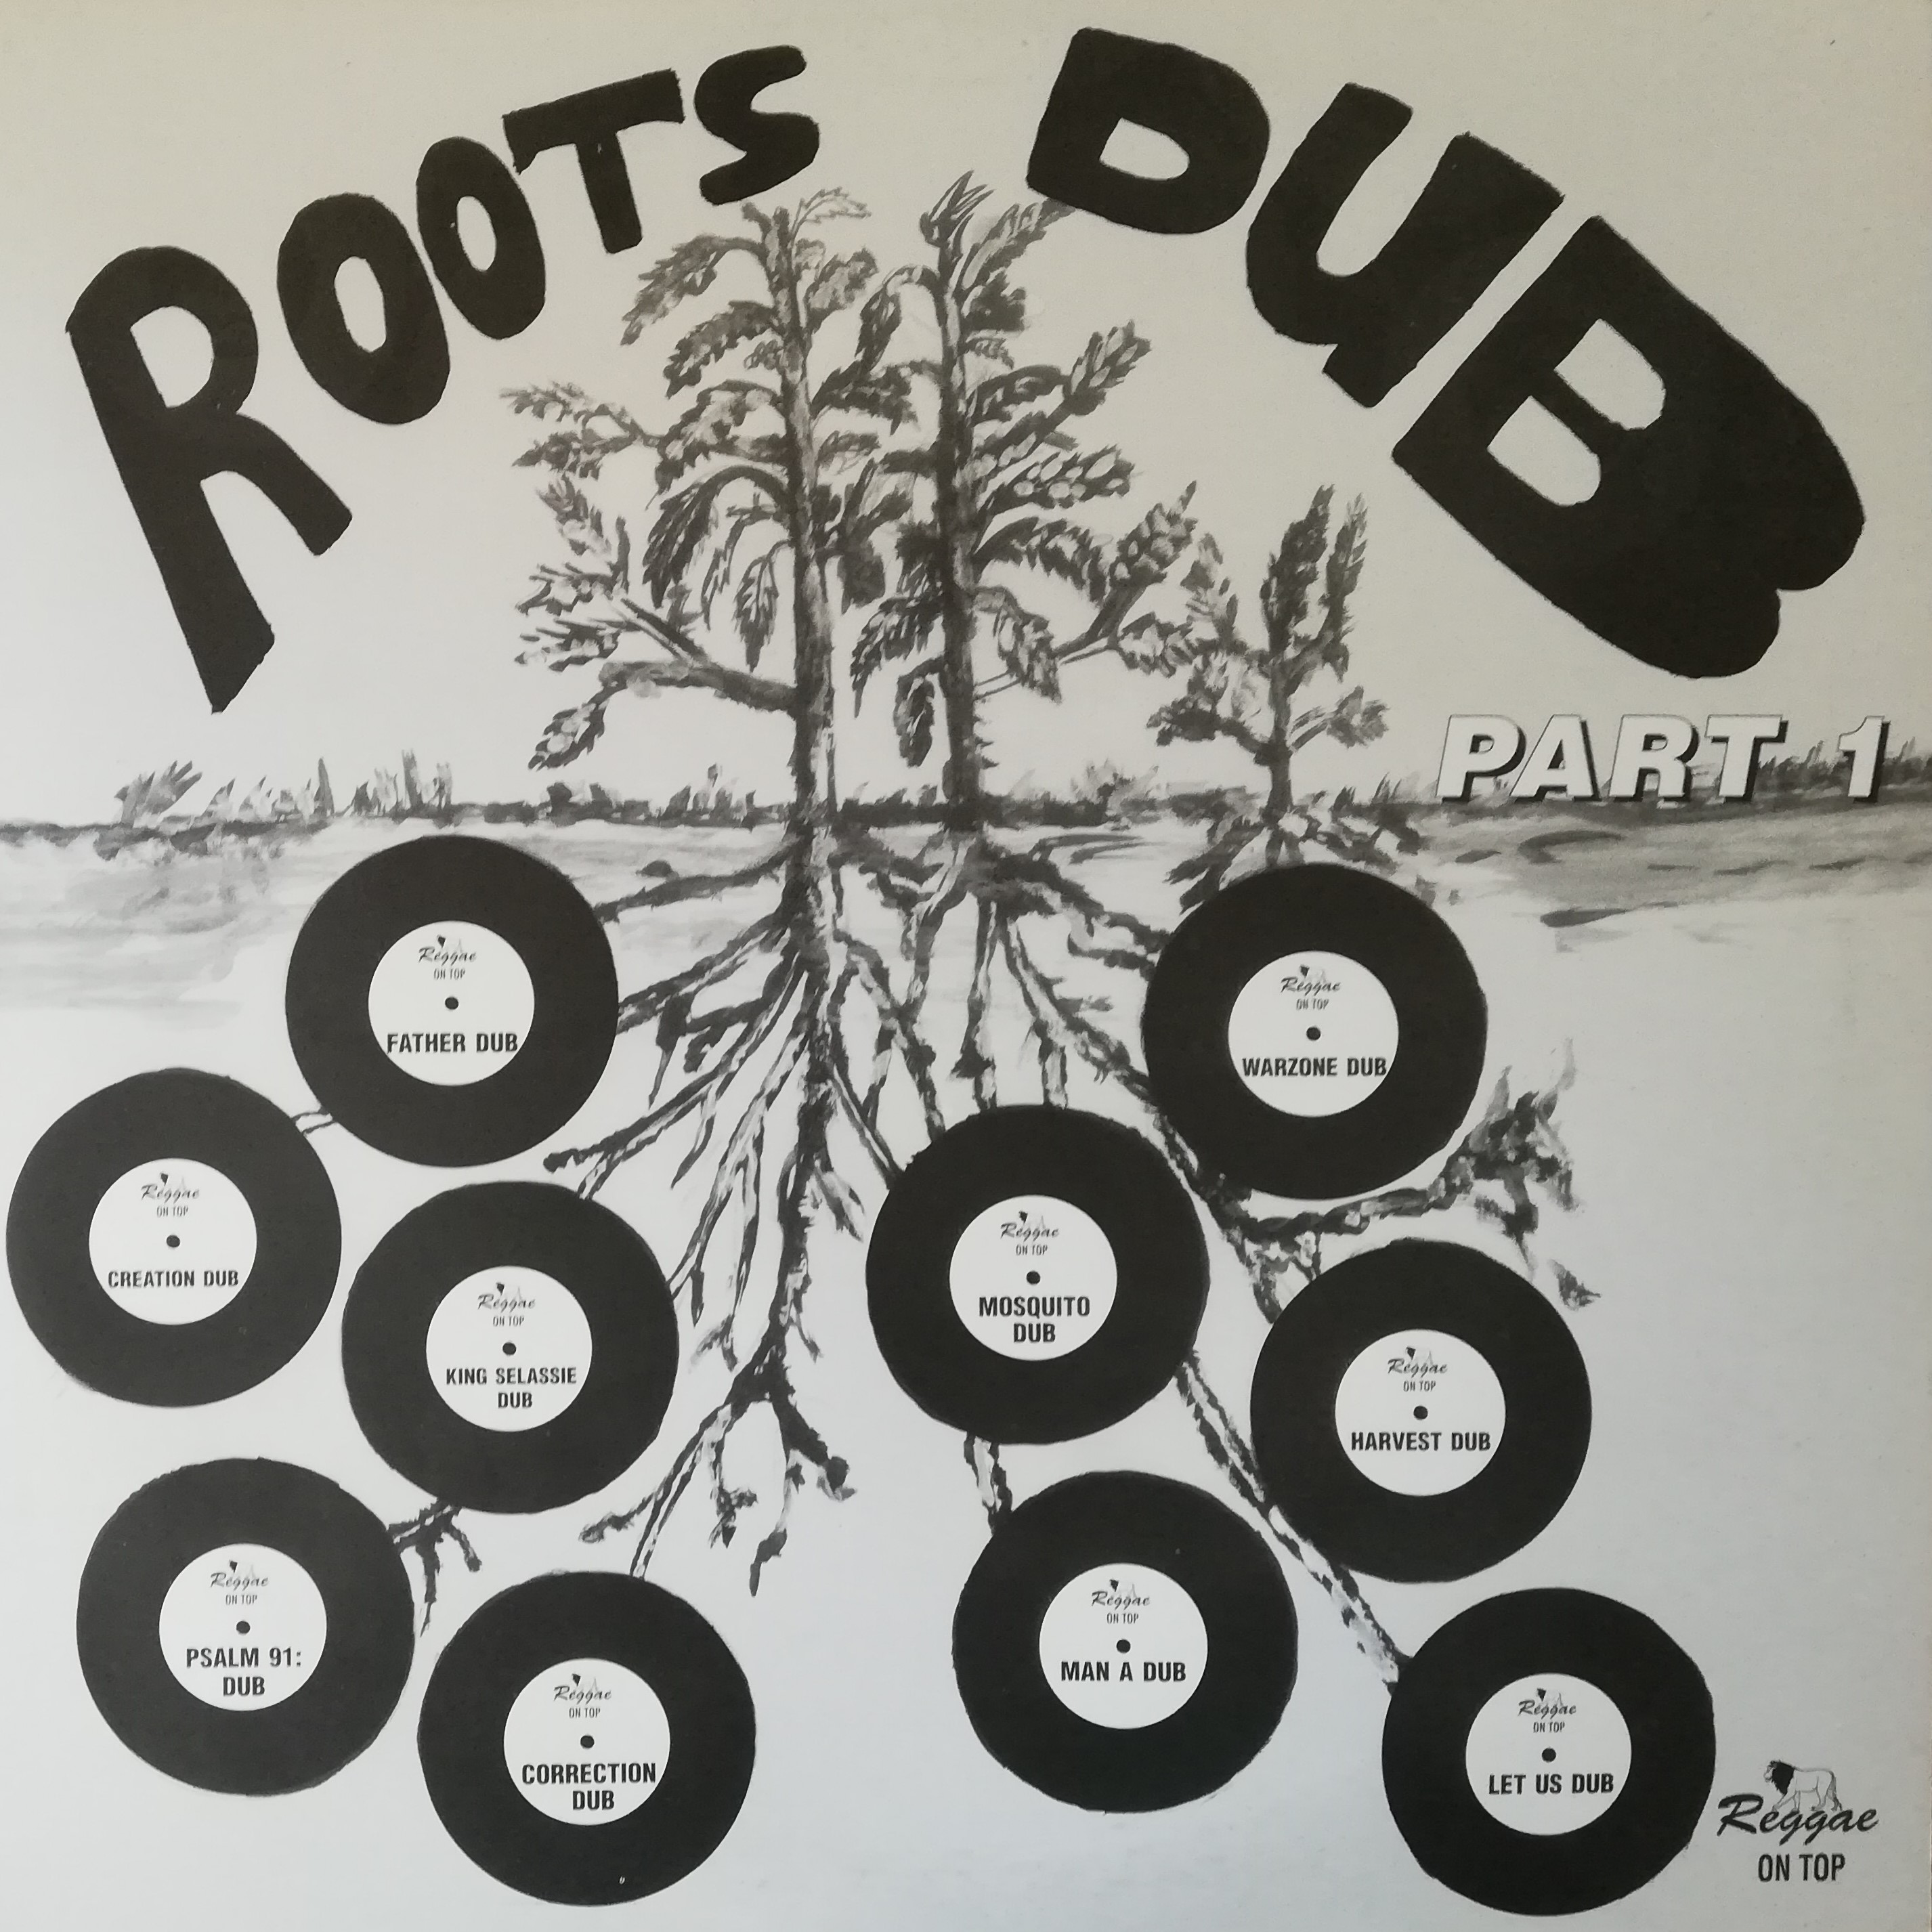 ROOTS DUB
PART 1
Reggae
ON TOP
FATHER DUB
Reggae
ON TOP
WARZONE DUB
Reggae
ON TOP
CREATION DUB
Reggae
ON TOP
KING SELASSIE
DUB
Reggae
ON TOP
MOSQUITO
DUB
Reggae
ON TOP
HARVEST DUB
Reggae
ON TOP
PSALM 91:
DUB
Reggae
ON TOP
CORRECTION
DUB
Reggae
ON TOP
MAN A DUB
Reggae
ON TOP
LET US DUB
Reggae
ON TOP